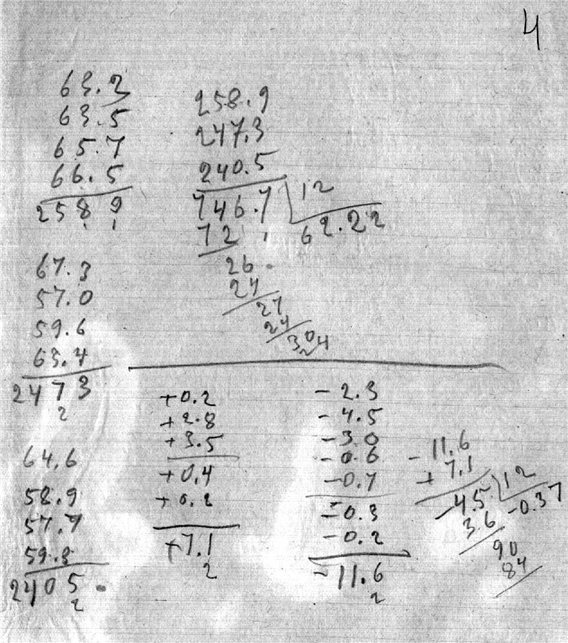 4
63.2
63.5
65.7
66.5
2589
1 1
67.3
57.0
59.6
63.4
2473
2
64.6
58.9
57.7
59.3
2405.
2
258.9
247.3
240.5
746.7 12
72 1 62.22
26.
24
27
24
304
2
+0.2
+2.8
+3.5
+0.4
+0.2
+7.1
2
-2.3
-4.5
-3.0
-0.6
-0.7
-0.3
-0.2
-11.6
2
-11.6
+7.1
-4.5 12
3.6 -0.37
90
84